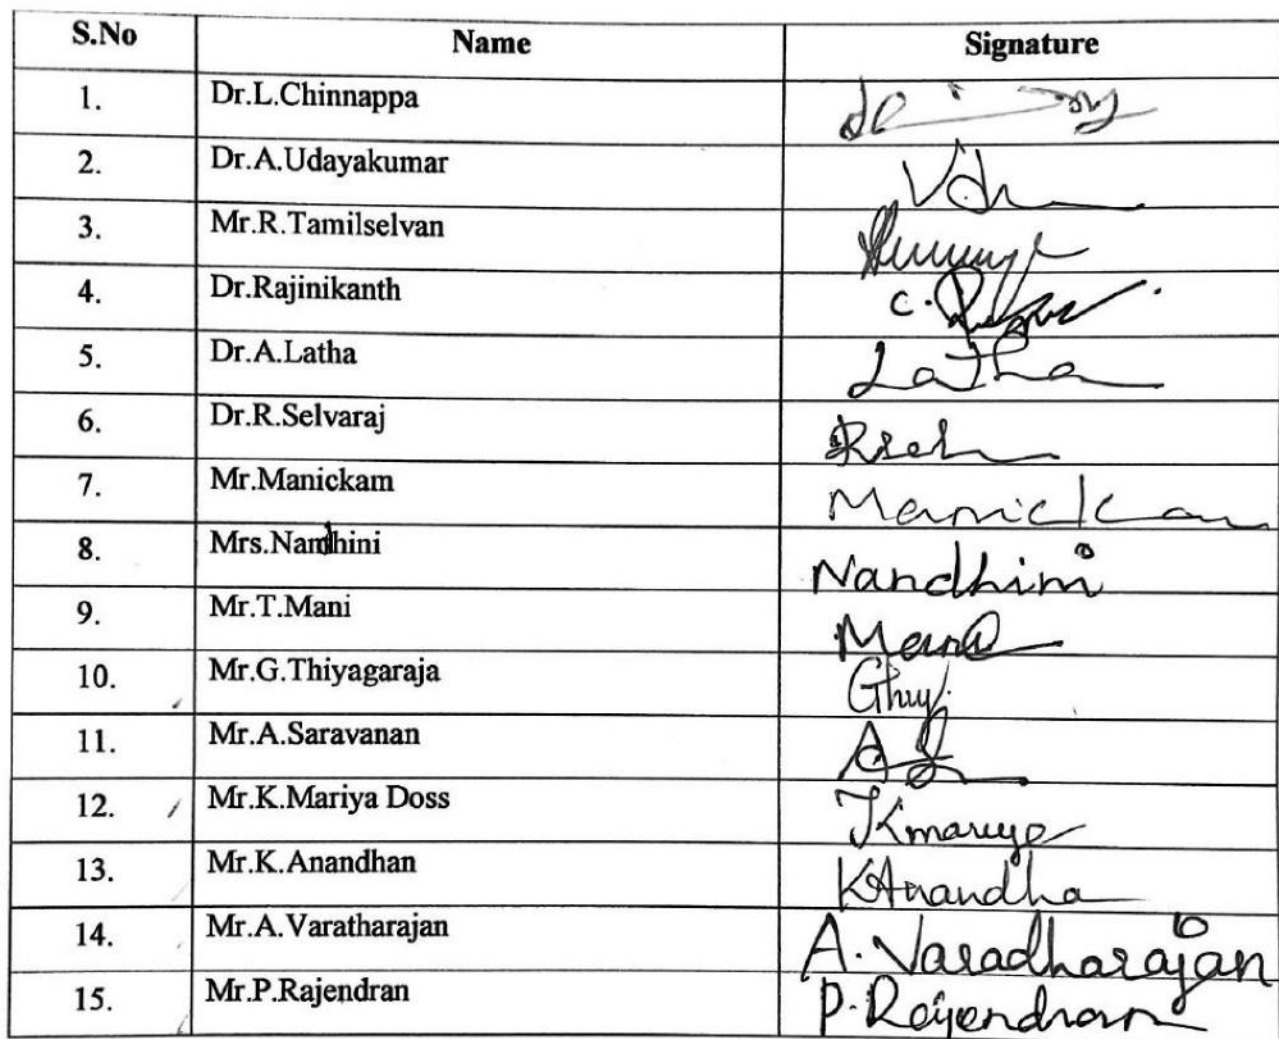 S.No Name Signature
1. Dr.L.Chinnappa
2. Dr.A.Udayakumar
3. Mr.R.Tamilselvan
4. Dr.Rajinikanth C.
5. Dr.A.Latha Latha
6. Dr.R.Selvaraj
7. Mr.Manickam Manickam
8. Mrs.Nandhini Nandhini
9. Mr.T.Mani Mani
10. Mr.G.Thiyagaraja
11. Mr.A.Saravanan
12. Mr.K.Mariya Doss
13. Mr.K.Anandhan KAnandha
14. Mr.A.Varatharajan A.Varadharajan
15. Mr.P.Rajendran P.Rajendran